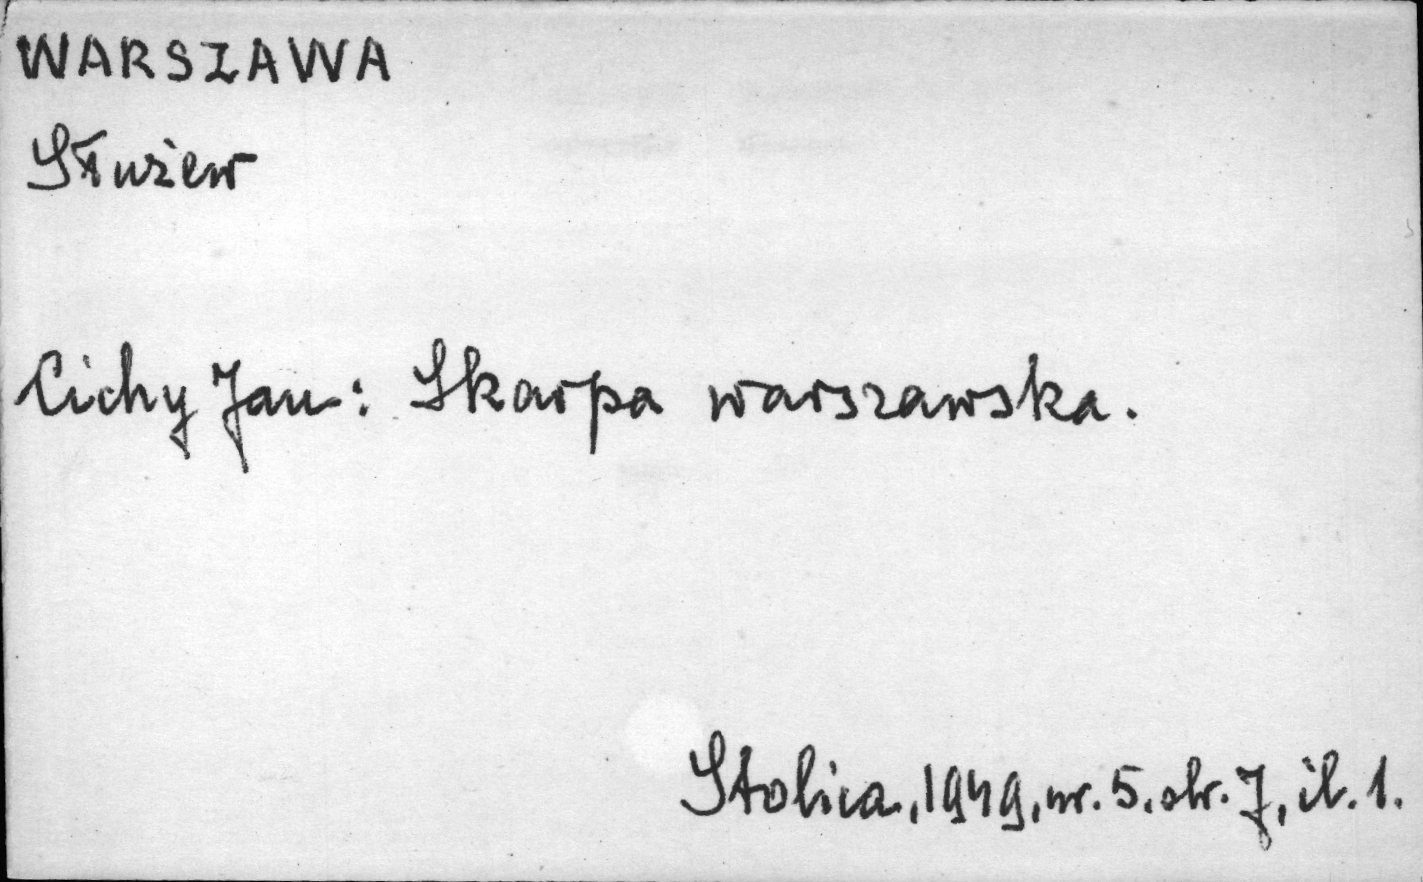 WARSZAWA
Służew
Cichy Jan: Skarpa warszawska.
Stolica, 1949, nr. 5, str. 7, il. 1.